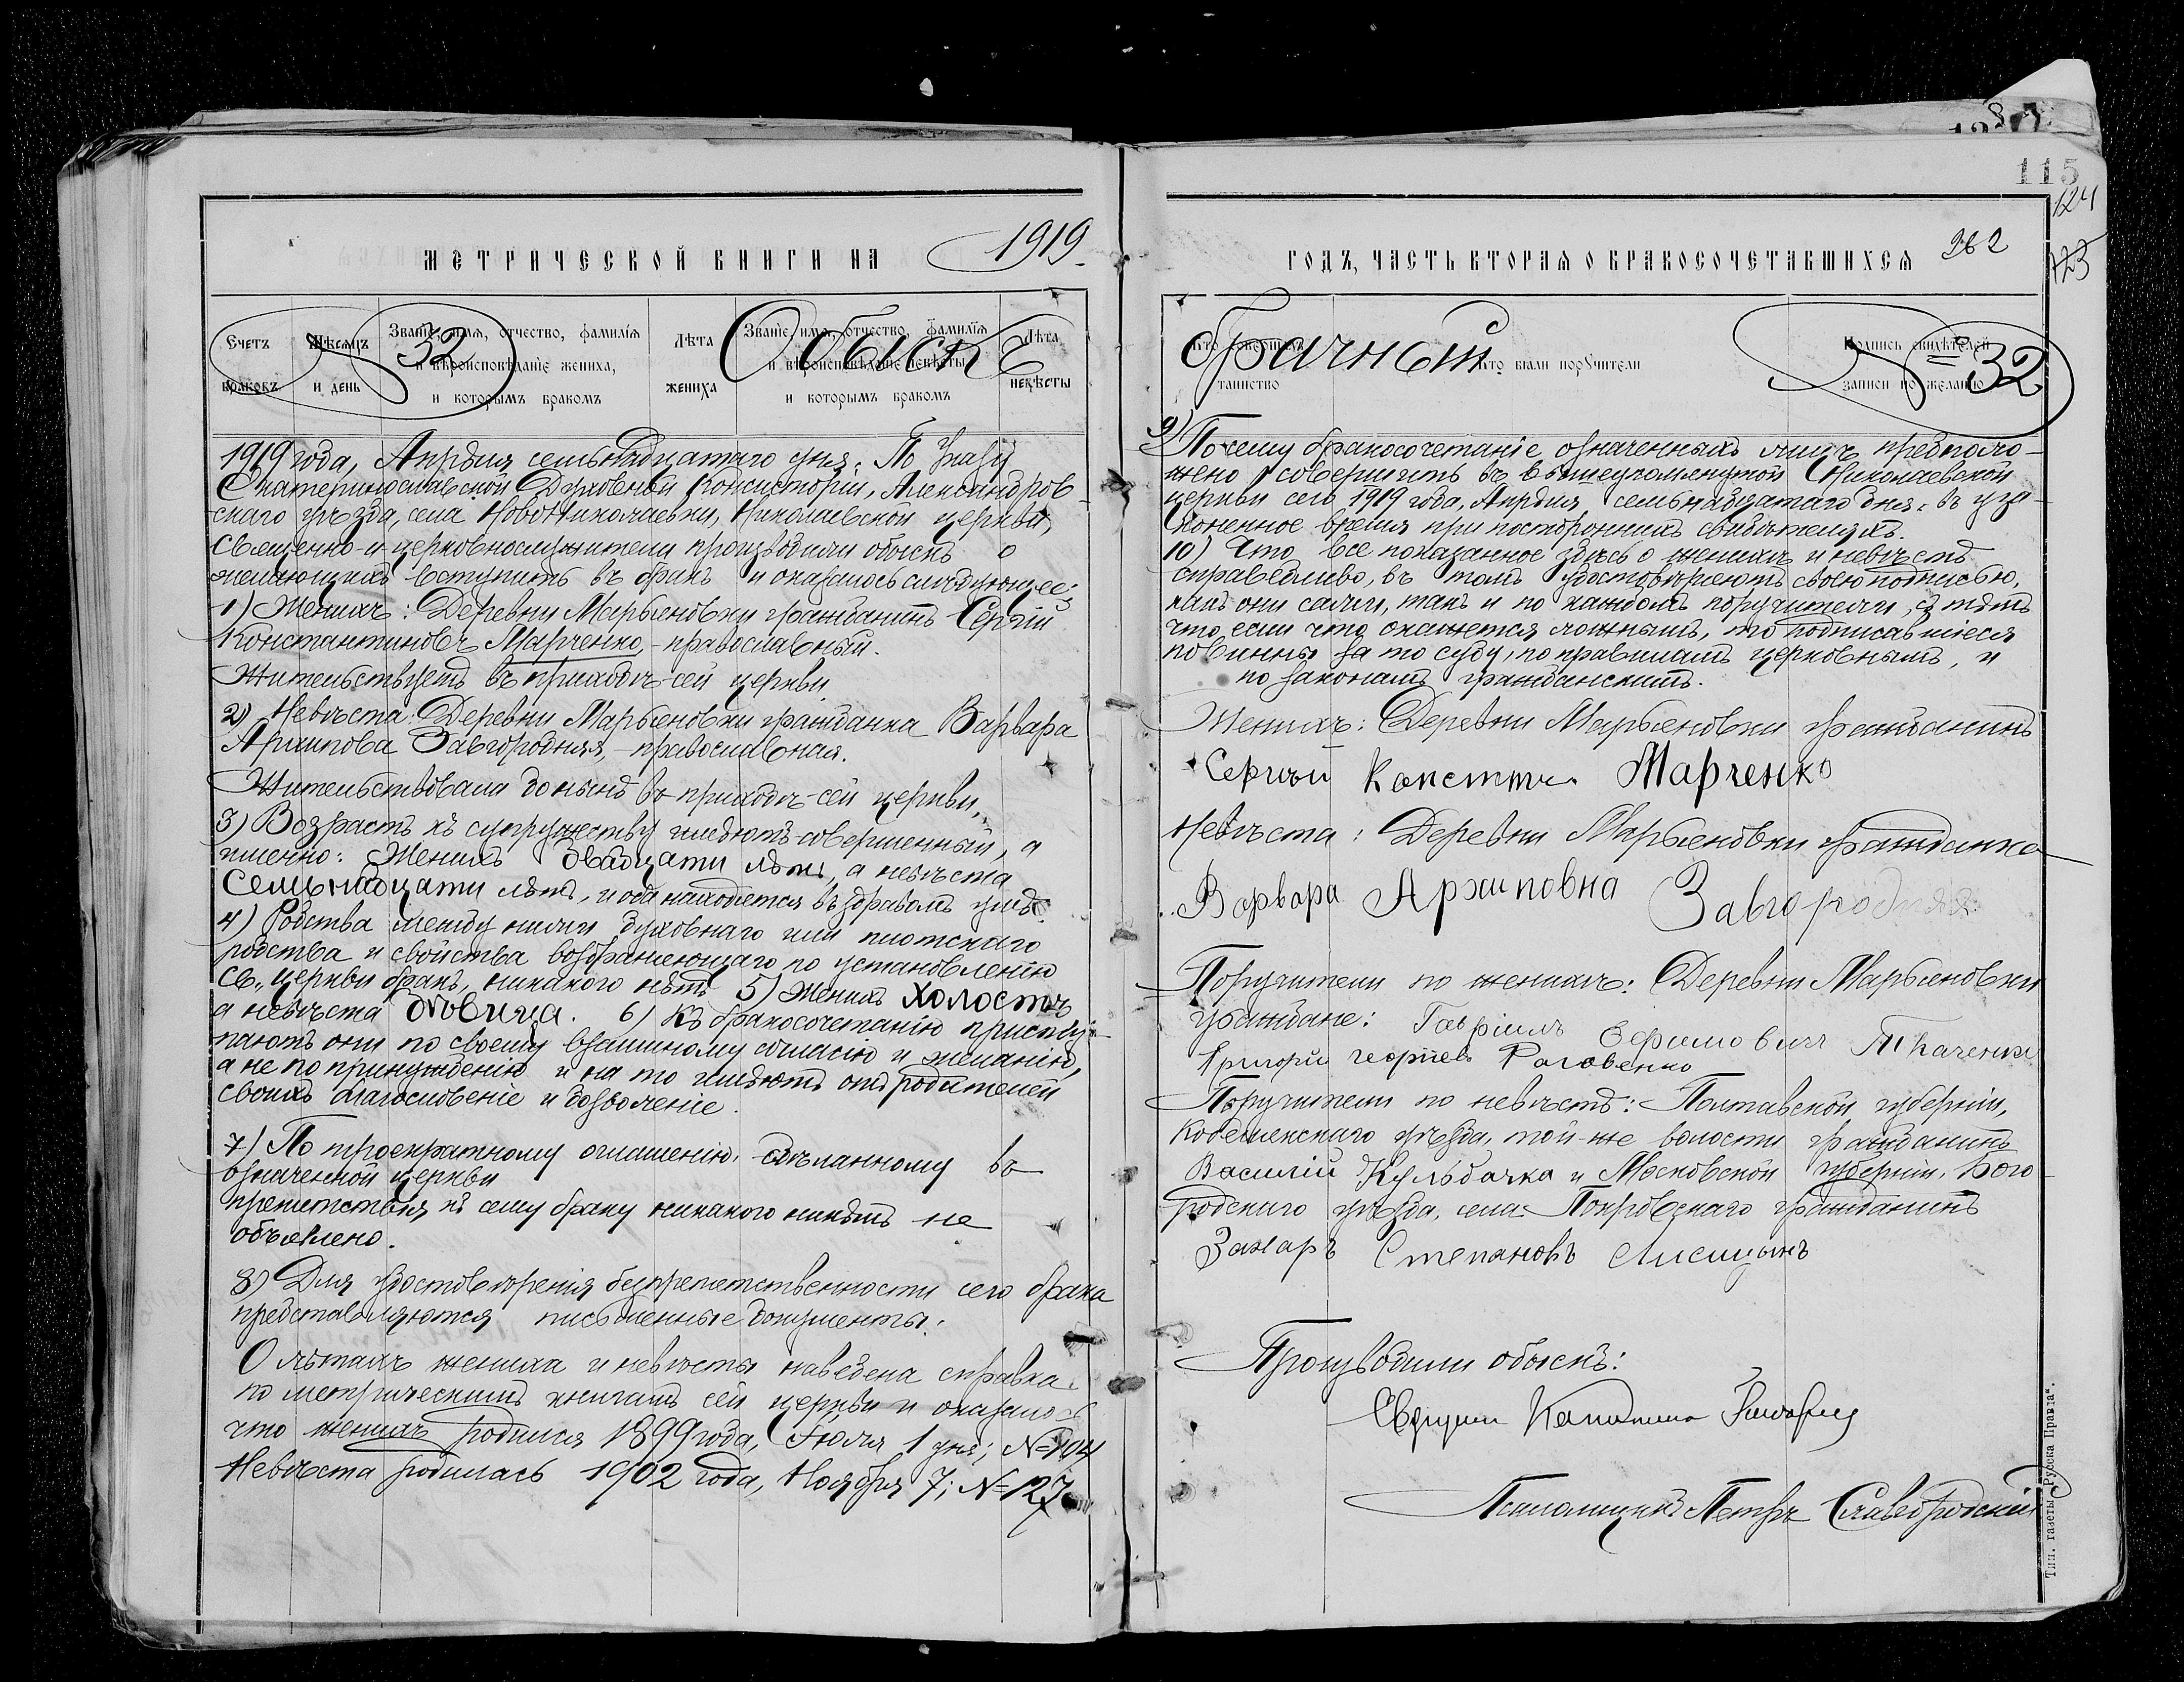 МЕТРИЧЕСКОЙ КНИГИ НА 1919
Счетъ браковъ
Мѣсяцъ и день
Званіе, имя, отчество, фамилія и вѣроисповѣданіе жениха, и которымъ бракомъ
Лѣта жениха
Званіе, имя, отчество, фамилія и вѣроисповѣданіе невѣсты и которымъ бракомъ
Лѣта невѣсты
32 Обыскъ
1919 года, Апрѣля семьнадцатаго дня. По Указу
Екатеринославской Духовной Консисторіи, Александров-
скаго уѣзда, села НовоНиколаевки, Николаевской церкви,
священно-и церковнослужители производили обыскъ о
желающихъ вступить въ бракъ и оказалось слѣдующее:
1) Женихъ: Деревни Марьяновки гражданинъ Сергѣй
Константиновъ Марченко, - православный.
Жительствуетъ въ приходѣ-сей церкви.
2) Невѣста: Деревни Марьяновки гражданка Варвара
Архипова Завгородняя, - православная.
Жительствовала донынѣ въ приходѣ-сей церкви.
3) Возрастъ къ супружеству имѣютъ-совершенный, а
именно: Женихъ двадцати лѣтъ, а невѣста
семьнадцати лѣтъ, и оба находятся въ здравомъ умѣ.
4) Родства между ними духовнаго или плотскаго
родства и свойства возбраняющаго по установленію
св. церкви бракъ, никакого нѣтъ 5) Женихъ холостъ
а невѣста дѣвица. 6) Къ бракосочетанію присту-
паютъ они по своему взаимному согласію и желанію,
а не по принужденію и на то имѣютъ отъ родителей
своихъ благословеніе и дозволеніе.
7) По троекратному оглашенію, сдѣланному въ
означенной церкви
препятствія къ сему браку никакого никѣмъ не
объявлено.
8) Для удостовѣренія безпрепятственности сего брака
представляются письменные документы:
О лѣтахъ жениха и невѣсты наведена справка
по метрическимъ книгамъ сей церкви и оказалось
что женихъ родился 1899 года, Іюля 1 дня; №104
Невѣста родилась 1902 года, Ноября 7; №127
115
124
123
ГОДЪ, ЧАСТЬ ВТОРАЯ О БРАКОСОЧЕТАВШИХСЯ 362
Кто совершалъ таинство
Кто были поручители
Подпись свидѣтелей записи по желанію
брачный №32
9) Посему бракосочетаніе означенныхъ лицъ предполо-
жено совершить въ вышеупомянутой Николаевской
церкви сего 1919 года, Апрѣля семьнадцатаго дня, въ уза-
коненное время при постороннихъ свидѣтеляхъ.
10) Что все показанное здѣсь о женихѣ и невѣстѣ
справедливо, въ томъ удостовѣряютъ своею подписью,
какъ они сами, такъ и по каждомъ поручители, съ тѣмъ
что если что окажется ложнымъ, то подписавшіеся
повинны за то суду, по правиламъ церковнымъ, и
по законамъ гражданскимъ.
Женихъ: Деревни Марьяновки гражданинъ
Сергѣй Констты Марченко
Невѣста: Деревни Марьяновки гражданка
Варвара Архиповна Завгородняя
Поручители по женихѣ: Деревни Марьяновки
граждане: Гавріилъ Ефимовичъ Ткаченко
Григорій Георгіевъ Роговенко
Поручители по невѣстѣ: Полтавской губерніи,
Кобелякскаго уѣзда, той-же волости гражданинъ
Василій Кульбачка и Московской губерніи, Бого-
родскаго уѣзда, села Покровскаго гражданинъ
Захаръ Степановъ Лисицынъ
Производили обыскъ:
Псаломщикъ Петръ Славгородскій
Тип. газеты „Русска Правда“.